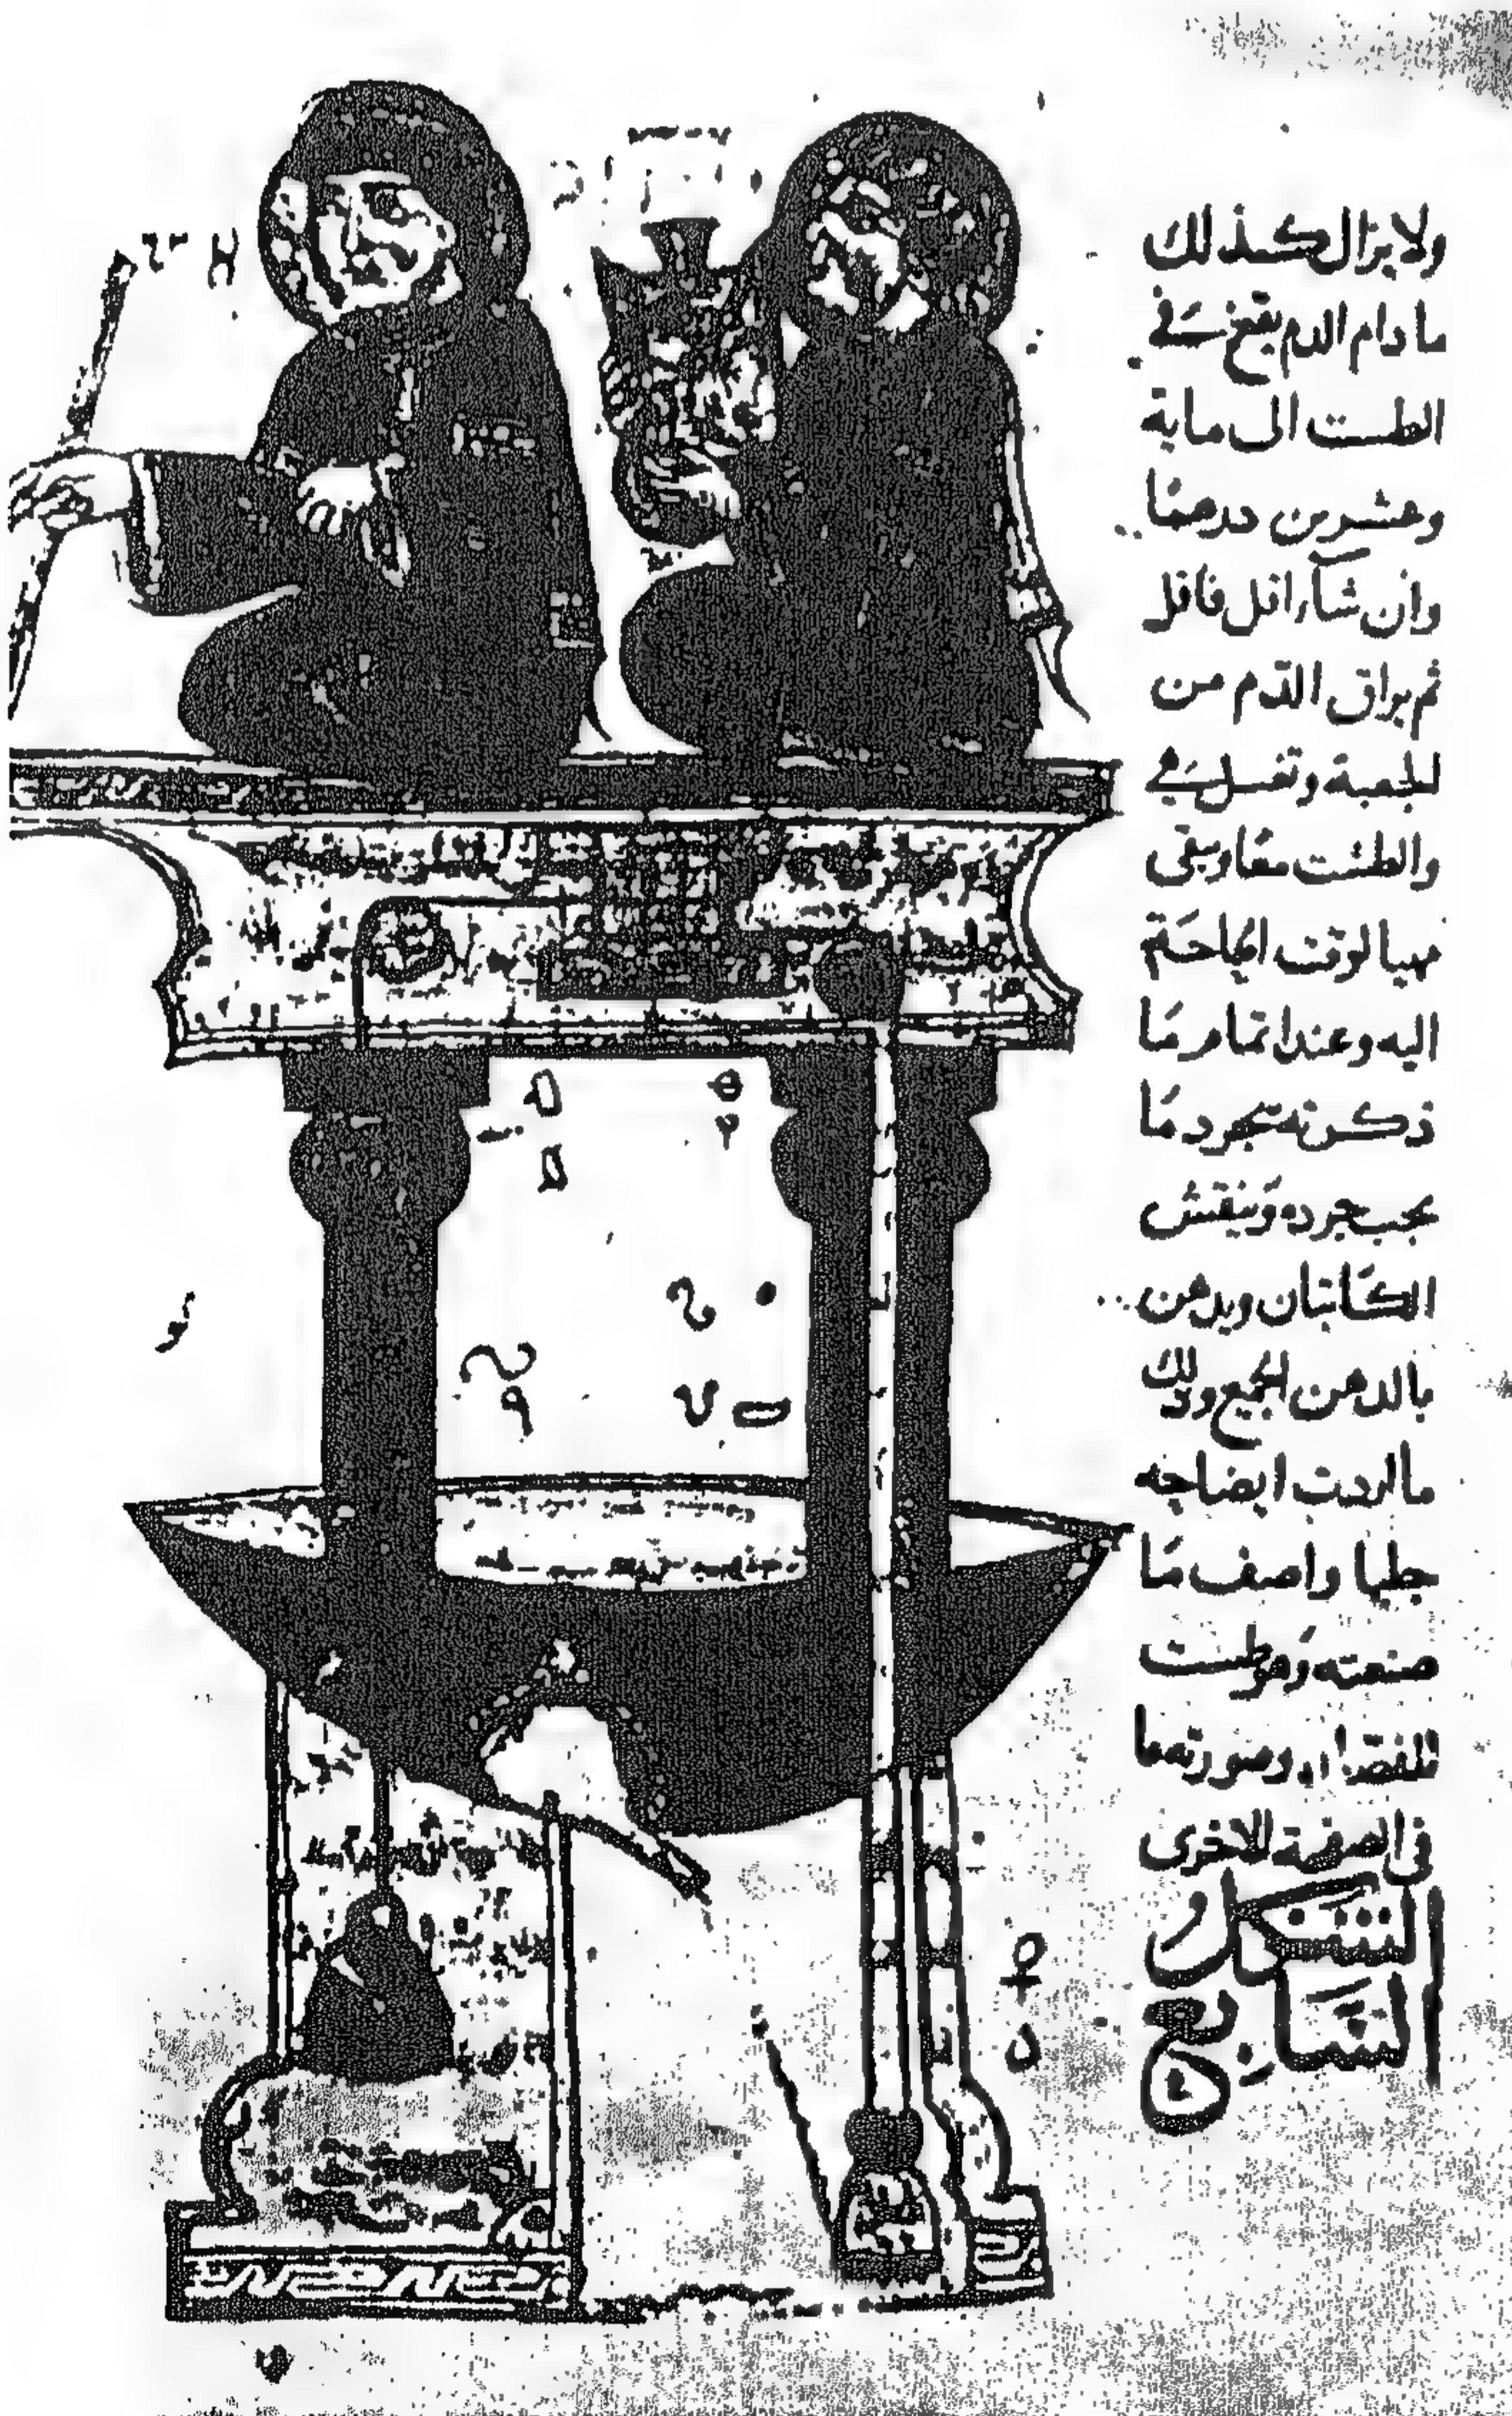 ولا يزال كذلك
ما دام الدم يقع في
الطست الى ماية
وعشرين درهمًا
وان شاء اقل فاقل
ثم يراق الدم من
الجعبة وتغسل هي
والطست معًا ويبقى
مهيا لوقت الحاجة
اليه وعند اتمام مَا
ذكرته تجرد مَا
يجب جرده وَينقش
الكَاتبان ويدهن
بالدهن الجميع وذلك
ما اردت ايضاحه
جليا واصف مَا
صنعته وَهو طست
للفصّاد وصورته ما
في الصفحة الاخرى
الشكل
السَّابع